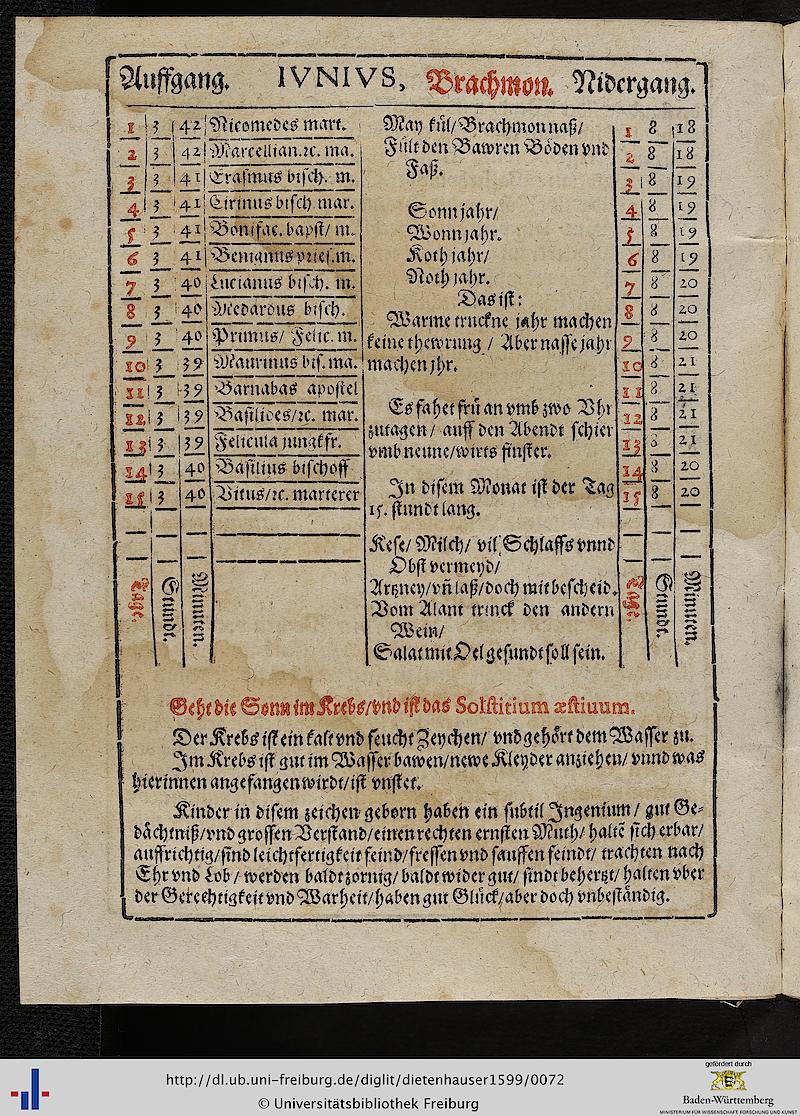 Auffgang. IVNIVS, Brachmon. Nidergang.
1 3 42 Nicomedes mart.
2 3 42 Marcellian. ꝛc. ma.
3 3 41 Erasmus bisch. m.
4 3 41 Cirinus bisch mar.
5 3 41 Bonifac. bapst/ m.
6 3 41 Benignus pries. m.
7 3 40 Lucianus bisch. m.
8 3 40 Medardus bisch.
9 3 40 Primus/ Felic. m.
10 3 39 Maurinus bis. ma.
11 3 39 Barnabas apostel
12 3 39 Basilides/ꝛc. mar.
13 3 39 Felicula jungkfr.
14 3 40 Basilius bischoff
15 3 40 Vitus/ꝛc. marterer
Tage. Stundt. Minuten.
May kül/ Brachmon naß/
Fült den Bawren Böden vnd
Faß.
Sonn jahr/
Wonn jahr.
Koth jahr/
Noth jahr.
Das ist:
Warme truckne jahr machen
keine thewrung / Aber nasse jahr
machen jhr.
Es fahet frü an vmb zwo Vhr
zutagen/ auff den Abendt schier
vmb neune/wirts finster.
In disem Monat ist der Tag
15. stundt lang.
Kese/ Milch/ vil Schlaffs vnnd
Obst vermeyd/
Artzney/vñ laß/doch mit bescheid.
Vom Alant trinck den andern
Wein/
Salat mit Oel gesundt soll sein.
1 8 18
2 8 18
3 8 19
4 8 19
5 8 19
6 8 19
7 8 20
8 8 20
9 8 20
10 8 21
11 8 21
12 8 21
13 8 21
14 8 20
15 8 20
Tage. Stundt. Minuten.
Geht die Sonn im Krebs/vnd ist das Solstitium æstiuum.
Der Krebs ist ein kalt vnd feucht Zeychen/ vnd gehört dem Wasser zu.
Im Krebs ist gut im Wasser bawen/newe Kleyder anziehen/ vnnd was
hierinnen angefangen wirdt/ist vnstet.
Kinder in disem zeichen geborn haben ein subtil Ingenium/ gut Ge-
dächtniß/vnd grossen Verstand/einen rechten ernsten Muth/ haltē sich erbar/
auffrichtig/sind leichtfertigkeit feind/fressen vnd sauffen feindt/ trachten nach
Ehr vnd Lob/ werden baldt zornig/ baldt wider gut/ sindt behertzt/ halten vber
der Gerechtigkeit vnd Warheit/haben gut Glück/aber doch vnbeständig.
http://dl.ub.uni-freiburg.de/diglit/dietenhauser1599/0072
© Universitätsbibliothek Freiburg
gefördert durch
Baden-Württemberg
MINISTERIUM FÜR WISSENSCHAFT, FORSCHUNG UND KUNST